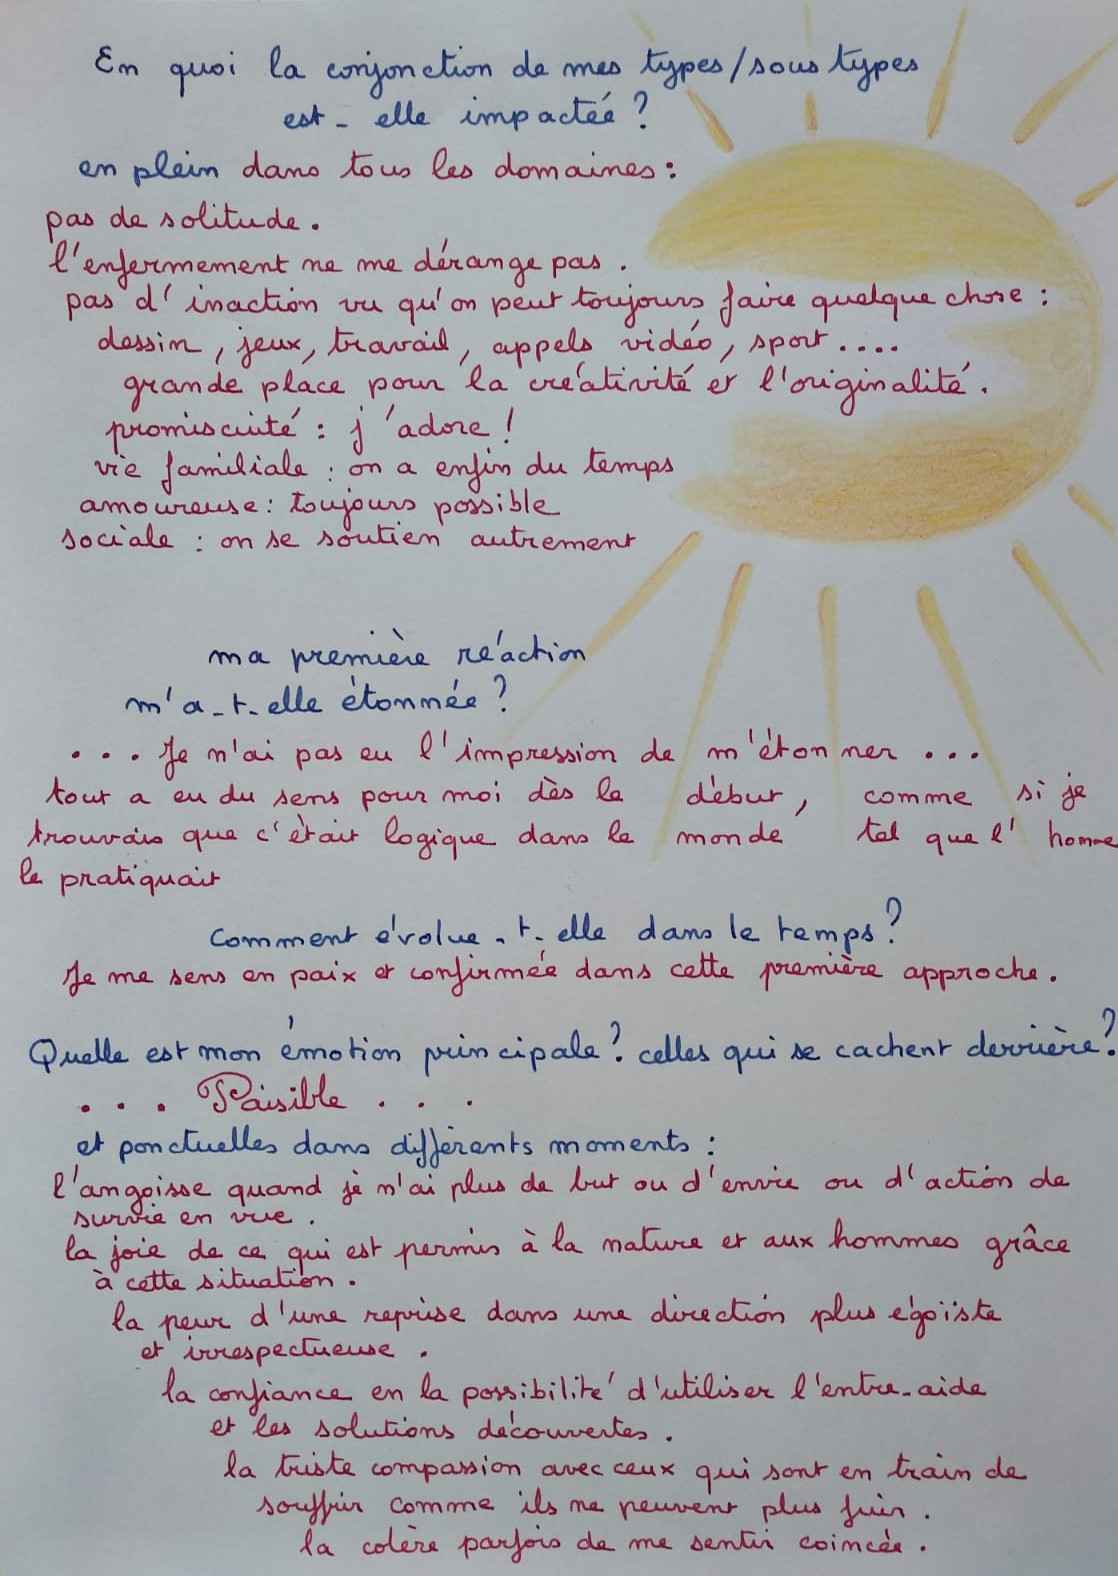 En quoi la conjonction de mes types/sous types
est - elle impactée ?
en plein dans tous les domaines :
pas de solitude .
l'enfermement ne me dérange pas .
pas d'inaction vu qu'on peut toujours faire quelque chose :
dessin , jeux, travail , appels vidéo , sport ....
grande place pour la créativité et l'originalité .
promiscuité : j'adore !
vie familiale : on a enfin du temps
amoureuse : toujours possible
sociale : on se soutien autrement
ma première réaction
m'a - t - elle étonnée ?
... Je n'ai pas eu l'impression de m'étonner ...
tout a eu du sens pour moi dès le début , comme si je
trouvais que c'était logique dans le monde tel que l'homme
le pratiquait
Comment évolue - t - elle dans le temps ?
Je me sens en paix et confirmée dans cette première approche .
Quelle est mon émotion principale ? celles qui se cachent derrière ?
... Paisible ...
et ponctuelles dans différents moments :
l'angoisse quand je n'ai plus de but ou d'envie ou d'action de
survie en vue .
la joie de ce qui est permis à la nature et aux hommes grâce
à cette situation .
la peur d'une reprise dans une direction plus égoïste
et irrespectueuse .
la confiance en la possibilité d'utiliser l'entre-aide
et les solutions découvertes .
la triste compassion avec ceux qui sont en train de
souffrir comme ils ne peuvent plus fuir .
la colère parfois de me sentir coincée .